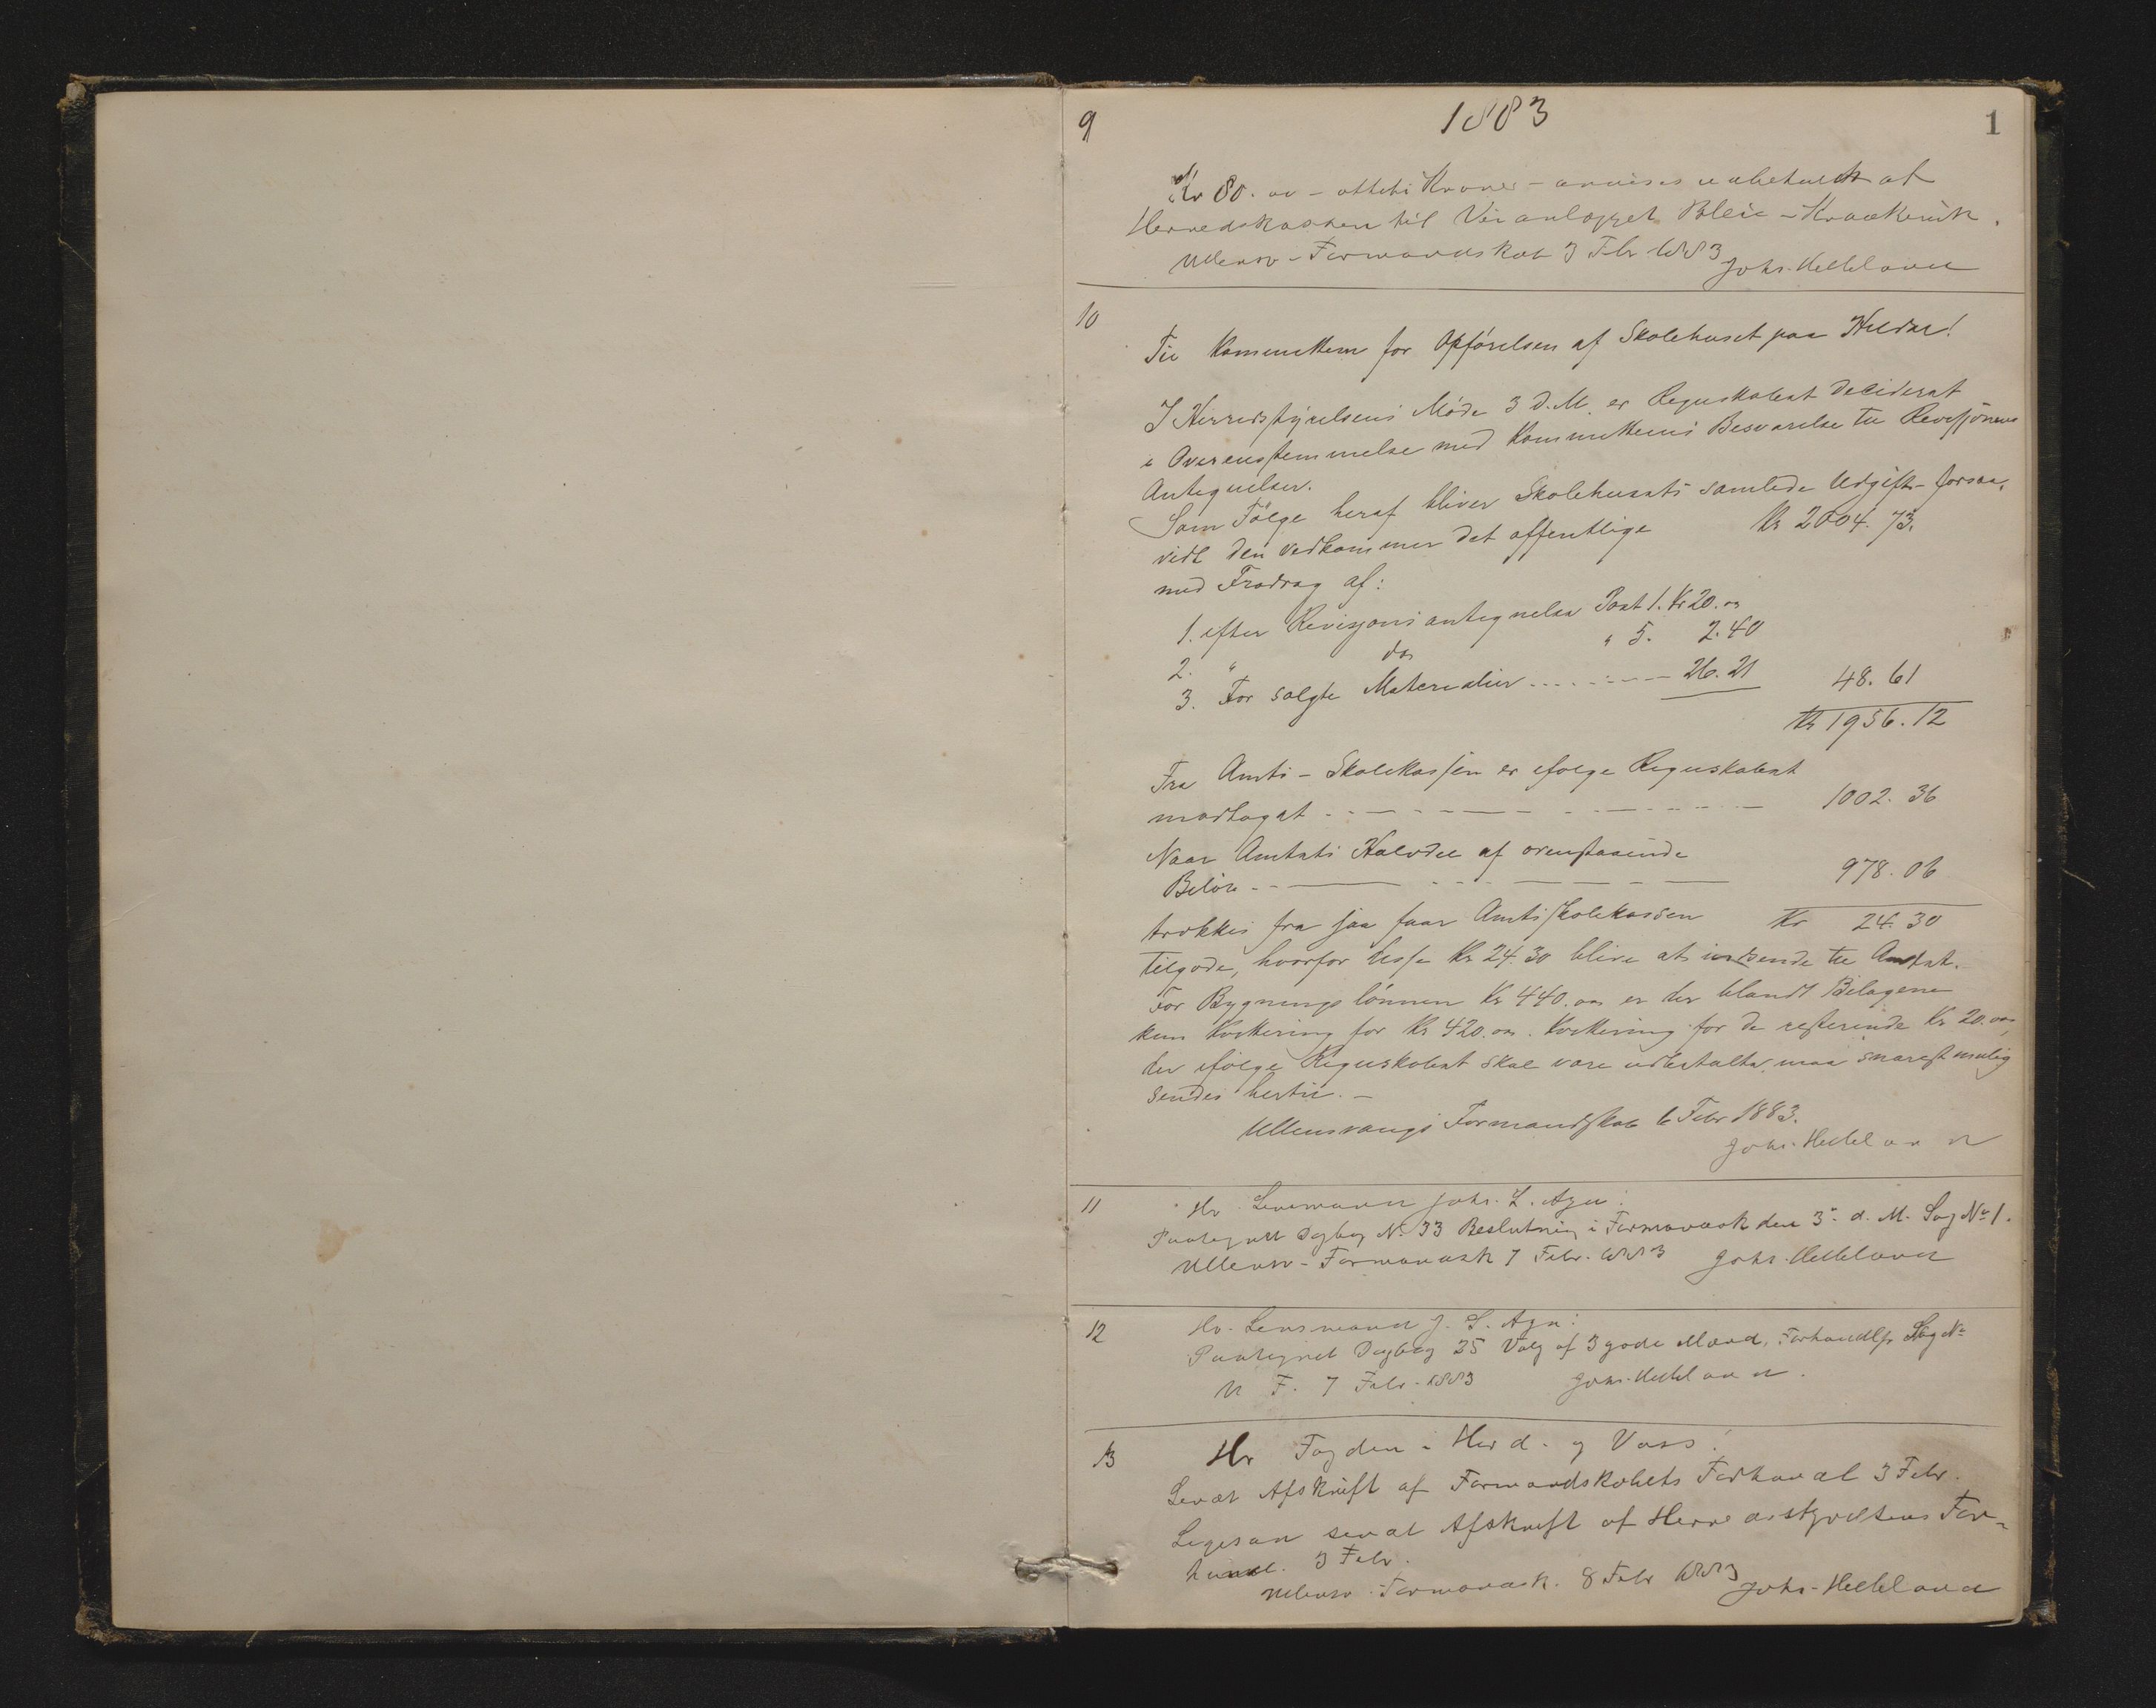 9 1883 1
Kr 80.00 - otteti Kroner - anvises udbetalt af
Herredskassen til Veianlægget Bleie - Kraakevik.
Ullensv. Formandskab 3 Febr 1883
Johs. Helleland
10
Til Kommitteen for Opførelsen af Skolehuset paa Hildal!
I Herredsstyrelsens Møde 3 d. M. er Regnskabet decideret
i Overensstemmelse med Kommitteens Besvarelse til Revisjonens
Antegnelser.
Som Følge heraf bliver Skolehusets samlede Udgift - forsaa-
vidt den vedkommer det offentlige Kr 2004.73.
med Fradrag af:
1. efter Revisjons antegnelse Post 1. Kr 20.00
2. " do " 5. 2.40
3. For solgte Materialier 26.21 48.61
Kr 1956.12
Fra Amts-Skolekassen er ifølge Regnskabet
modtaget 1002.36
Naar Amtets Halvdel af ovenstaaende
Beløb 978.06
trækkes fra saa faar Amtsskolekassen Kr 24.30
tilgode, hvorfor disse Kr 24.30 blive at indsende til Amtet.
For Bygningslønnen Kr 440.00 er der blandt Bilagene
kun Kvittering for Kr 420.00. Kvittering for de resterende Kr 20.00,
der ifølge Regnskabet skal være udbetalte, maa snarest mulig
sendes hertil. -
Ullensvangs Formandskab 6 Febr 1883.
Johs. Helleland
11 Hr Lensmand Johs. L. Aga!
Paategnet Dagbog No 33 Beslutning i Formandsk den 3. d. M. Sag No 1.
Ullensv - Formandsk 7 Febr. 1883 Johs. Helleland
12 Hr. Lensmand J. L. Aga:
Paategnet Dagbog 35 Valg af 3 gode Mænd, Forhandlgs Sag No
U F. 7 Febr. 1883 Johs. Helleland.
13 Hr Fogden i Hard. og Voss!
Sendt Afskrift af Formandskabets Forhandl 3 Febr.
Ligesaa sendt Afskrift af Herredsstyrelsens For-
handl. 3 Febr.
Ullensv. Formandsk. 8 Febr 1883 Johs. Helleland